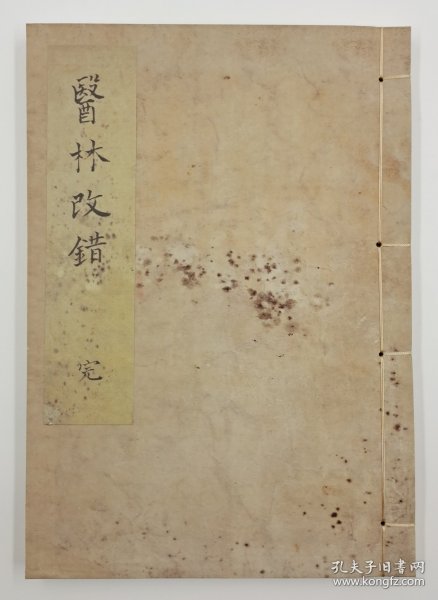 醫林改錯
完
孔夫子旧书网
www.kongfz.com